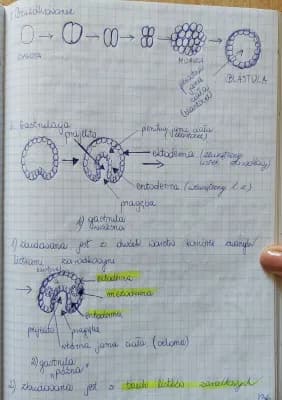 1. Bruzdkowanie
ZYGOTA
MORULA
pierwotna
jama
ciała
BLASTULA
2. Gastrulacja
prajelito
pierwotna jama ciała
ektoderma (zewnętrzny
listek zarodkowy)
entoderma (wewnętrzny l. z.)
pragęba
1) gastrula
wczesna
1) zbudowana jest z dwóch warstw komórek zwanych
listkami zarodkowymi
ektoderma
mezoderma
entoderma
prajelito pragęba
wtórna jama ciała (celoma)
2) gastrula
"późna"
2) zbudowana jest z trzech listków zarodkowych